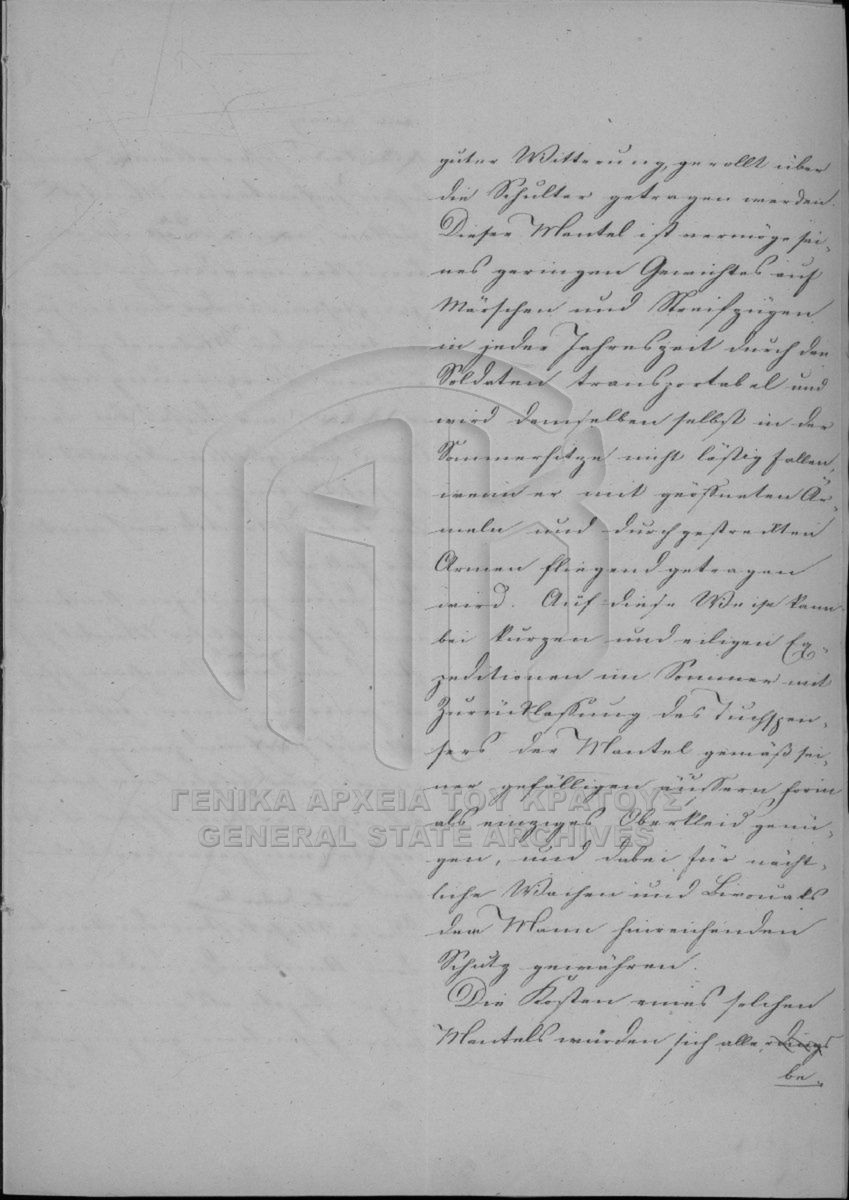 guter Witterung, gerollt über
die Schulter getragen werden.
Dieser Mantel ist vermöge sei-
nes geringen Gewichtes auf
Märschen und Streifzügen
in jeder Jahreszeit durch den
Soldaten transportabel und
wird demselben selbst in der
Sommerhitze nicht lästig fallen,
wenn er mit geöffneten Är-
meln und durchgestreckten
Armen fliegend getragen
wird. Auf diese Weise kann
bei kurzen und eiligen Ex-
peditionen im Sommer mit
Zurücklassung des Tuchspen-
sers der Mantel gemäß sei-
ner gefälligen äussern Form
als einziges Oberkleid genü-
gen, und dabei für nächt-
liche Wachen und Bivouaks
dem Mann hinreichenden
Schutz gewähren.
Die Kosten eines solchen
Mantels würden sich allerdings
be-
ΓΕΝΙΚΑ ΑΡΧΕΙΑ ΤΟΥ ΚΡΑΤΟΥΣ
GENERAL STATE ARCHIVES